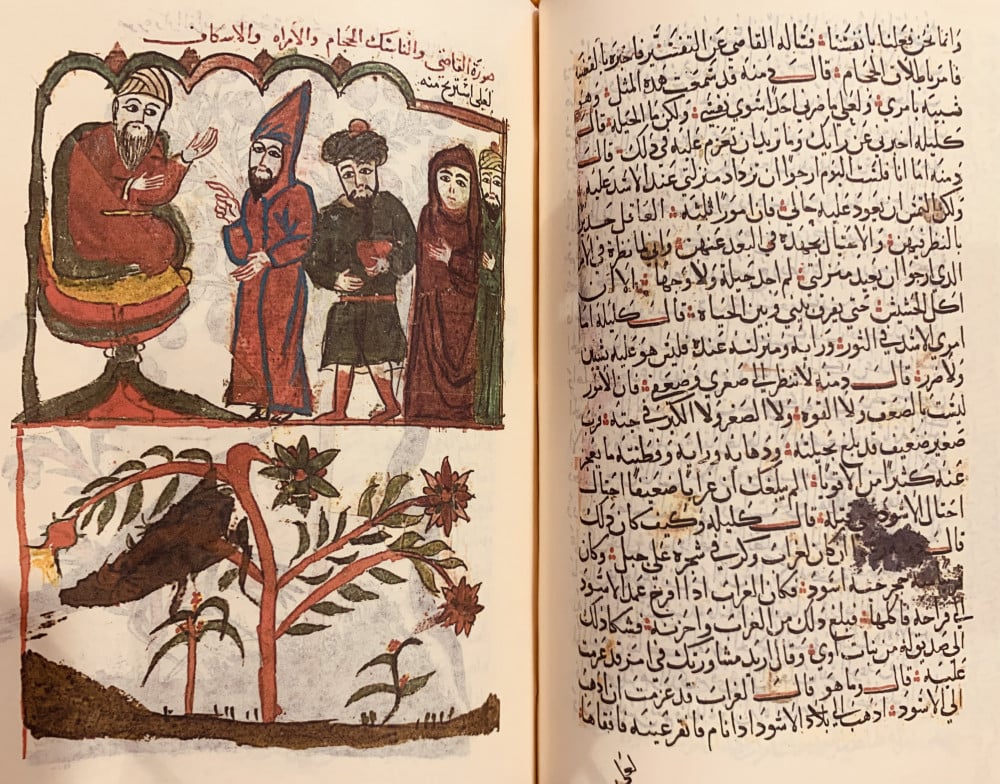 صورة القاضى والناسك والحجام والامراه والاسكاف
لعلى استرح منه
وانما نحن فعلنا بانفسنا فساله القاضي عن التفسير فاخبره بالقصة
فامر باطلاق الحجام قال دمنه قد سمعت هذه المثل وهو
شبيه بامري ولعلى ما ضرني احد سوى نفسي ولكن ما الحيلة قال
كليله اخبرني عن رايك وما تريد ان تعزم عليه في ذلك قال
دمنه اما انا فلست اليوم ارجوا ان تزداد منزلتى عند الاسد عليه
ولكن التمس ان تعود عليه حالي فان امورا ثلثه العاقل جدير
بالنظر فيهن والاحتيال بجهده في
الذى ارجوا ان يعيد منزلتى لم اجد حيلة ولا وجها الا ان
اكل الحشيش حتى يفرق بيني وبين الحياة قال كليله اما
امرى الاسد في الثور ورايه ومنزلته عنده فليس هو عليه بشين
ولا ضر قال دمنه لا تنظر الى صغرى وضعفي فان الامور
ليست بالضعف ولا القوه ولا الصغر ولا الكبر في جثة فرب
صغير ضعيف قد بلغ بحيلته ودهايه ورايه وفطنته ما يعجز
عنه كثير من الاقويا الم يبلغك ان غرابا ضعيفا احتال
احتال لاسود قال كليله وكيف كان ذلك
قال ان كان لغراب وكر في شجره على جبل وكان
جحر حية اسود فكان الغراب اذا افرخ عمد الاسود
الى فراخه فاكلها فبلغ ذلك من الغراب واحزنه فشكا ذلك
الى صديق له من بنات اوى وقال اريد مشاورتك في امر قد عزمت
عليه قال وما هو قال الغراب قد عزمت ان اذهب
الى الاسود اذا نام فانقر عينيه فافقاها
لعلى